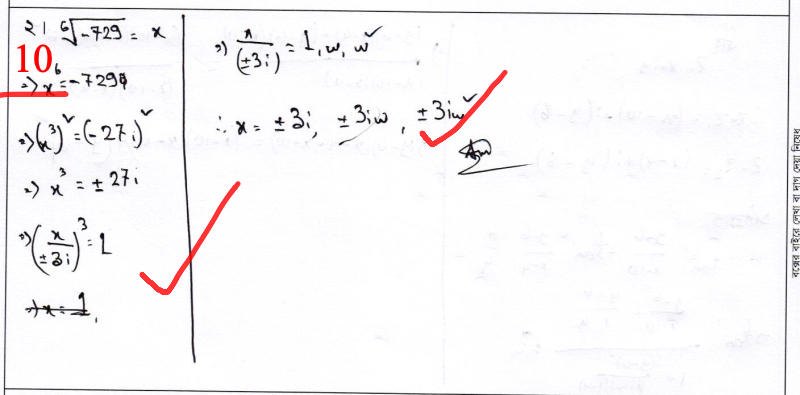 ২। ⁶√-729 = x
10
=> x⁶ = -729
=> (x³)² = (-27i)²
=> x³ = ± 27i
=> (x/±3i)³ = 1
=> x = 1
=> x/(±3i) = 1, w, w²
∴ x = ±3i, ±3iw, ±3iw²
Ans
বক্সের বাইরে লেখা বা দাগ দেয়া নিষেধ